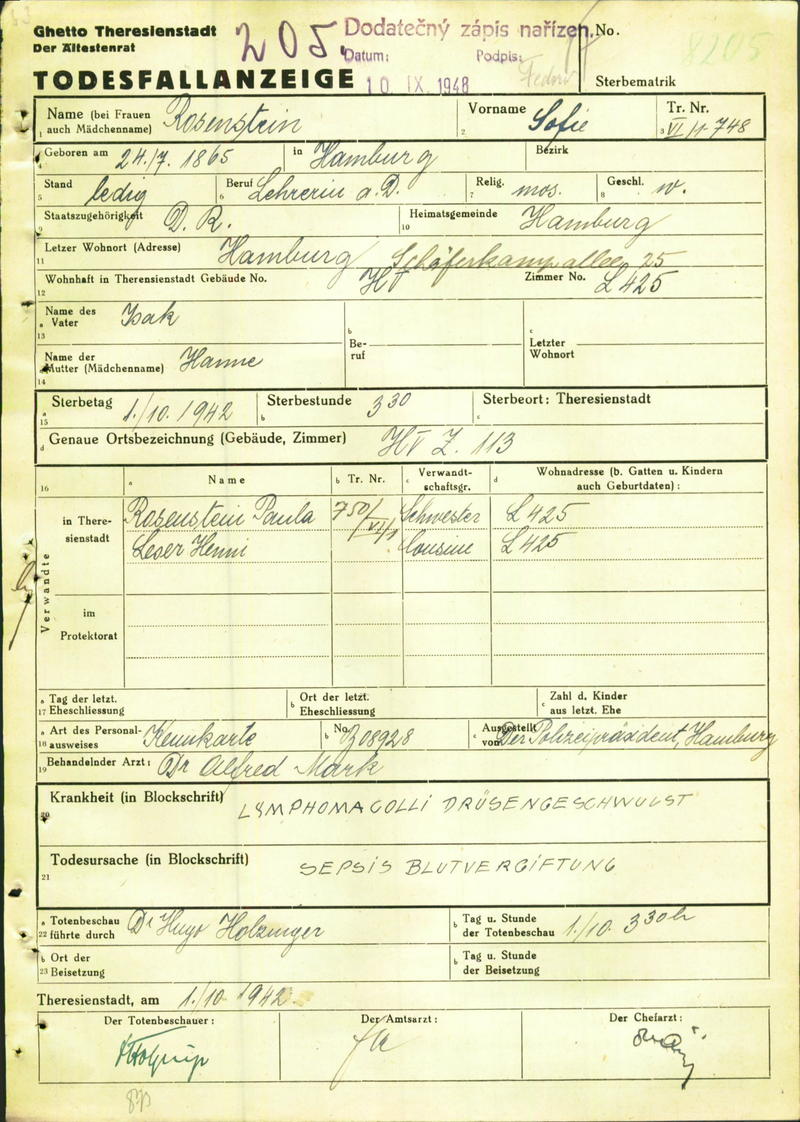 Ghetto Theresienstadt
Der Ältestenrat
TODESFALLANZEIGE
205.
Dodatečný zápis nařízen.
Datum: Podpis:
10 IX. 1948
No.
8205
Sterbematrik
Name (bei Frauen auch Mädchenname) Rosenstein
1
Vorname Sofie
2
Tr. Nr.
3 VI/1-748
4 Geboren am 24./7. 1865 in Hamburg Bezirk
Stand ledig Beruf Lehrerin a.D. Relig. mos. Geschl. w.
5 6 7 8
Staatszugehörigkeit D. R. Heimatsgemeinde Hamburg
9 10
Letzer Wohnort (Adresse) Hamburg Schäferkampallee 25
11
Wohnhaft in Theresienstadt Gebäude No. Zimmer No. L 425
12
Name des
a Vater Isak
13
b Be-
ruf
c Letzter
Wohnort
Name der
a Mutter (Mädchenname) Hanne
14
a Sterbetag 1./10. 1942 b Sterbestunde 3 30 c Sterbeort: Theresienstadt
15
d Genaue Ortsbezeichnung (Gebäude, Zimmer) HV Z. 113
16 a Name b Tr. Nr. c Verwandt-
schaftsgr. d Wohnadresse (b. Gatten u. Kindern
auch Geburtdaten) :
Verwandte
in There-
sienstadt
Rosenstein Paula 750/VI/1 Schwester L 425
Leser Henni Cousine L 425
im
Protektorat
a Tag der letzt.
17 Eheschliessung
b Ort der letzt.
Eheschliessung
c Zahl d. Kinder
aus letzt. Ehe
a Art des Personal-
18 ausweises Kennkarte
b No. 08928
c Ausgestellt
vom Der Polizeipräsident, Hamburg
19 Behandelnder Arzt: Dr Alfred Mark
Krankheit (in Blockschrift) LYMPHOMA COLLI DRÜSENGESCHWULST
20
Todesursache (in Blockschrift) SEPSIS BLUTVERGIFTUNG
21
a Totenbeschau
22 führte durch Dr Hugo Holzinger
b Tag u. Stunde
der Totenbeschau 1./10. 3 30 h
b Ort der
23 Beisetzung
b Tag u. Stunde
der Beisetzung
Theresienstadt, am 1./10 1942.
Der Totenbeschauer:
Der Amtsarzt:
Der Chefarzt: